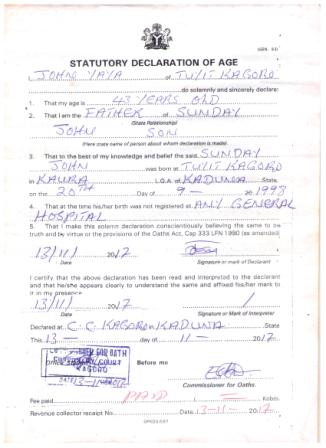 STATUTORY DECLARATION OF AGE
I JOHN YAYA of TUYIT KAGORO
do solemnly and sincerely declare:
1. That my age is 43 YEARS OLD
2. That I am the FATHER of SUNDAY
(State Relationship)
JOHN SON
(Here state name of person about whom declaration is made).
3. That to the best of my knowledge and belief the said SUNDAY
JOHN was born at TUYIT KAGORO
in KAURA L.G.A. of KADUNA State,
on the 20TH Day of 9 - 1998
4. That at the time his/her birth was not registered at ANY GENERAL
HOSPITAL
5. That I make this solemn declaration conscientiously believing the same to be
truth and by virtue of the provisions of the Oaths Act, Cap 333 LFN 1990 (as amended)
13/11/ 2017
Date Signature or mark of Declarant
I certify that the above declaration has been read and interpreted to the declarant
and that he/she appears clearly to understand the same and affixed his/her mark to
it in my presence
13/11/ 2017
Date Signature or Mark of Interpreter
Declared at C.C. KAGORO KADUNA State
This 13 - day of 11 - 2017
FOR OATH
COURT
KAGORO
Before me
Commissioner for Oaths.
Fee paid PAID Kobo.
Revenue collector receipt No. Date 13-11- 2017